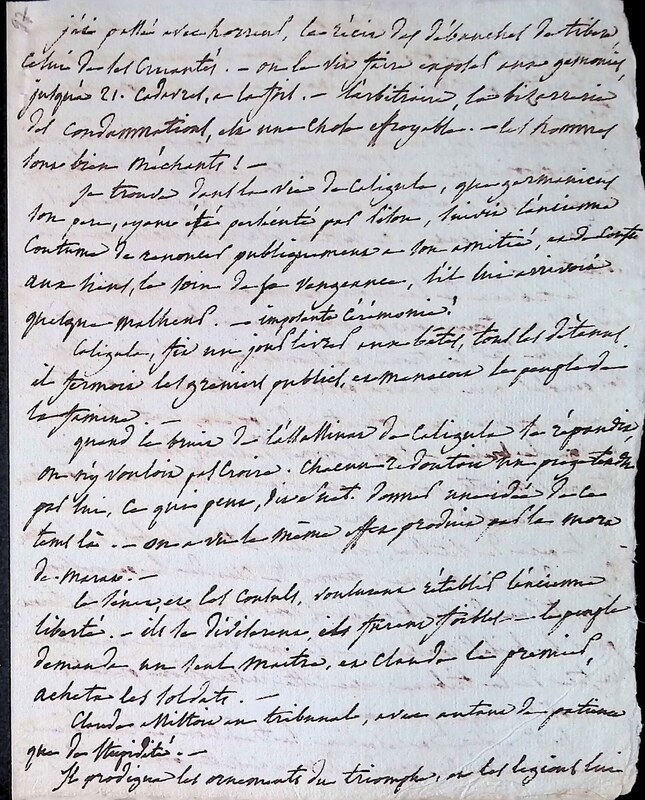 j'ai passé avec horreur, le récit des débauches de tibere
celui de ses Cruautés. - on le vit faire exposer aux gemonies,
jusqu'a 21. Cadavres, a la fois. - l'arbitraire, la bizarrerie
des condamnations, est une chose effroyable. - les hommes
sont bien méchants! -
je trouve dans la vie de Caligula, que germanicus
son pere, ayant été persécuté par Pison, suivit l'ancienne
Coutume de renoncer publiquement a son amitié, et de
aux siens, le soin de sa vengeance, s'il lui arrivoit
quelque malheur. - imposante Cérémonie!
Caligula, fit un jour livrer aux bêtes, tous les détenus
il fermoit les greniers publics, et menaçoit le peuple de
la famine -
quand le bruit de l'assassinat de Caligula se répandit
on n'y vouloit pas croire. Chacun redoutoit un piege tendu
par lui, ce qui peut, dit donner une idée de ce
tems là. - on a vu le même effet produit par la mort
de marat. -
le sénat, et les Consuls, voulurent rétablir l'ancienne
liberté. - ils se diviserent, ils furent foibles - le peuple
demanda un seul maitre, et Claude le premier,
acheta les soldats. -
Claude assistoit au tribunal, avec autant de patience
que de stupidité. -
Il prodigua les ornements du triomphe, et les legions lui